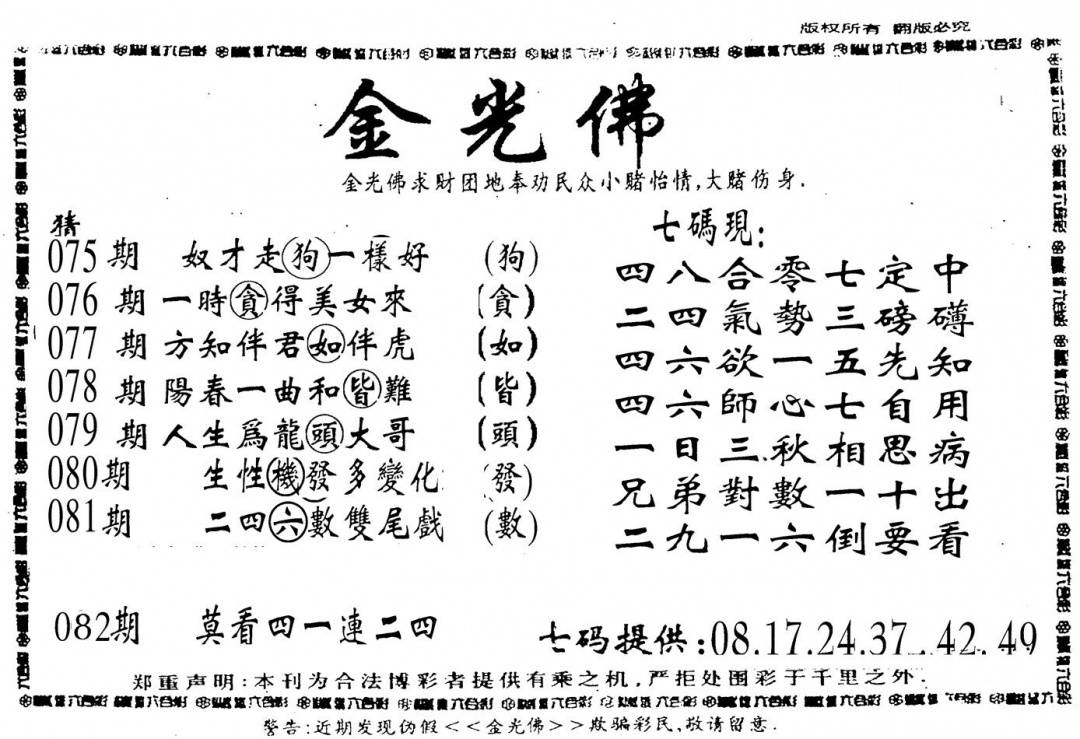 版权所有 翻版必究
金光佛
金光佛求财团地奉劝民众小赌怡情,大赌伤身.
猜
075期 奴才走狗一樣好 (狗)
076期 一時貪得美女來 (貪)
077期 方知伴君如伴虎 (如)
078期 陽春一曲和皆難 (皆)
079期 人生爲龍頭大哥 (頭)
080期 生性機發多變化 (發)
081期 二四六數雙尾戲 (數)
082期 莫看四一連二四
七碼現:
四八合零七定中
二四氣勢三磅礴
四六欲一五先知
四六師心七自用
一日三秋相思病
兄弟對數一十出
二九一六倒要看
七码提供:08.17.24.37 42.49
郑重声明:本刊为合法博彩者提供有乘之机,严拒处围彩于千里之外.
警告:近期发现伪假<<金光佛>>欺骗彩民,敬请留意.